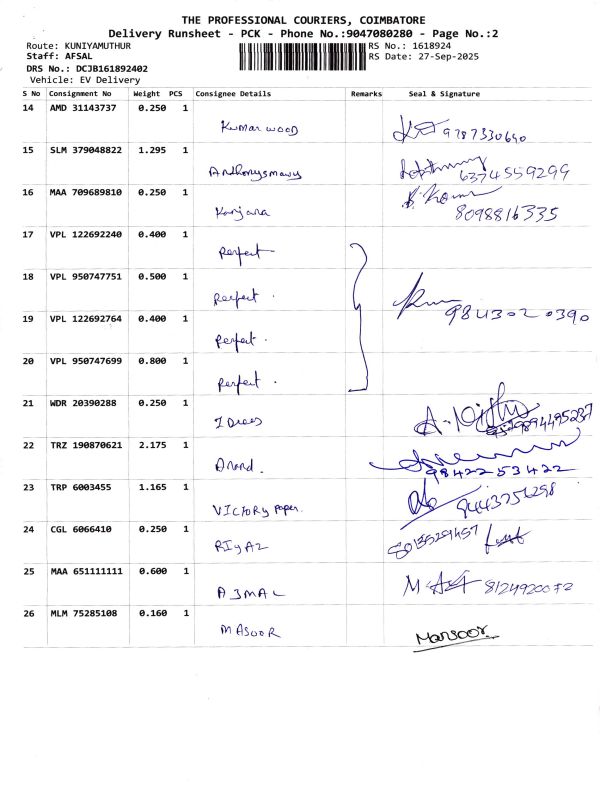 THE PROFESSIONAL COURIERS, COIMBATORE
Delivery Runsheet - PCK - Phone No.:9047080280 - Page No.:2
Route: KUNIYAMUTHUR RS No.: 1618924
Staff: AFSAL RS Date: 27-Sep-2025
DRS No.: DCJB161892402
Vehicle: EV Delivery
S No Consignment No Weight PCS Consignee Details Remarks Seal & Signature
14 AMD 31143737 0.250 1
Kumar wood 9787330640
15 SLM 379048822 1.295 1
Anthonysmavy 6374559299
16 MAA 709689810 0.250 1
Kanjana 8098816335
17 VPL 122692240 0.400 1
Perfect
18 VPL 950747751 0.500 1
perfect. 9843020390
19 VPL 122692764 0.400 1
perfect.
20 VPL 950747699 0.800 1
perfect.
21 WDR 20390288 0.250 1
9894495237
22 TRZ 190870621 2.175 1
Anand. 9842253422
23 TRP 6003455 1.165 1
VICTORy paper. 9443756298
24 CGL 6066410 0.250 1
RIyAZ
25 MAA 651111111 0.600 1
AJMAL 8124920072
26 MLM 75285108 0.160 1
MASOOR Mansoor